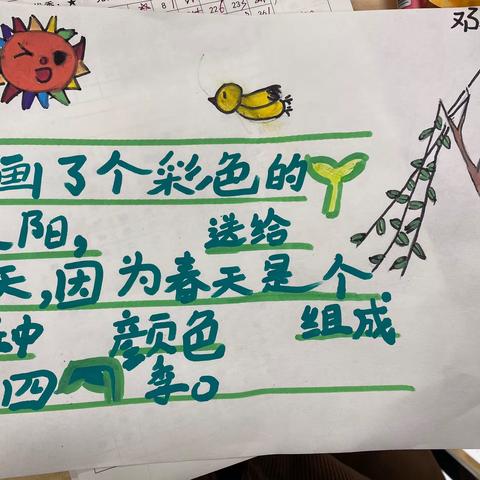 邓
画了个彩色的
阳, 送给
天,因为春天是个
种 颜色 组成
四 季。